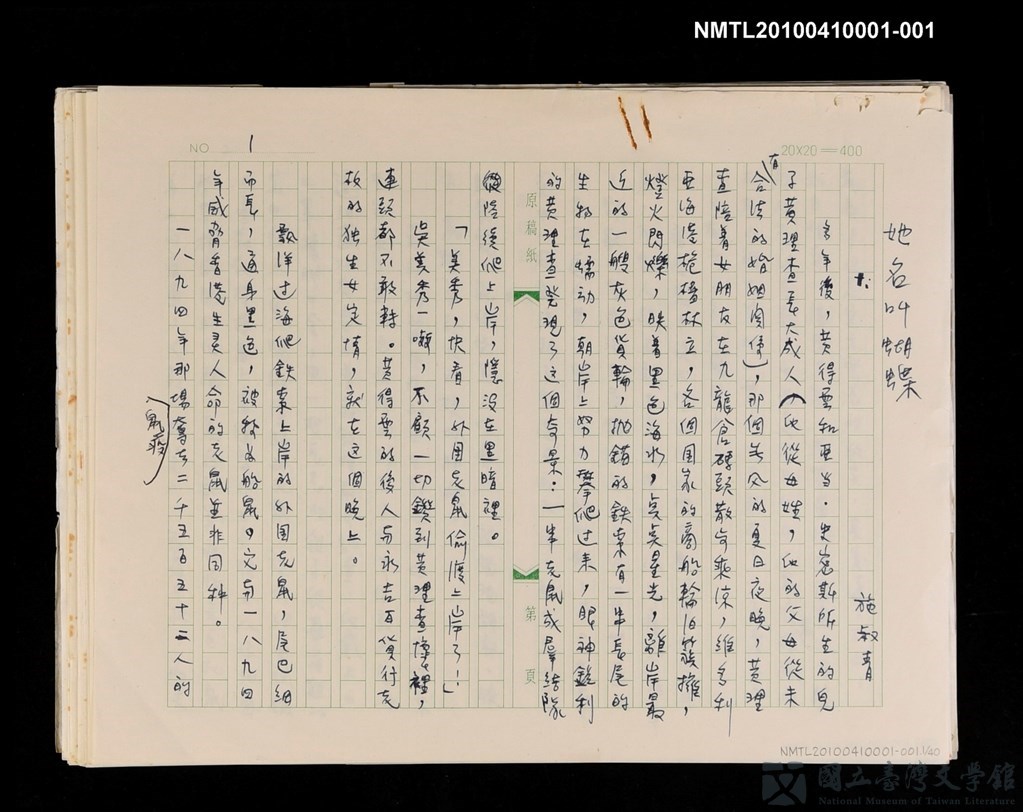 NMTL20100410001-001
NO 1
20X20=400
她名叫蝴蝶
施叔青
多年後，黃得雲和亞当·史密斯所生的兒
子黃理查長大成人（他從母姓，他的父母從未
有合法的婚姻関係），那個無風的夏日夜晚，黃理
查陪着女朋友在九龍倉碼頭散步乘涼，維多利
亞海港桅檣林立，各個国家的商船輪泊簇擁，
燈火閃爍，映着黑色海水，点点星光，離岸最
近的一艘灰色貨輪，拋錨的鉄索有一串長尾的
生物在蠕动，朝岸上努力攀爬过来，眼神銳利
的黃理查発現了这個奇景：一串老鼠成群結隊
原稿紙
第 頁
從陸續爬上岸，隱沒在黑暗裡。
「美秀，快看，外国老鼠偷渡上岸了！」
吳美秀一嚇，不顧一切鑽到黃理查懷裡，
連頭都不敢轉。黃得雲的後人与永吉百貨行老
板的独生女定情，就在这個晚上。
飄洋过海爬鉄索上岸的外国老鼠，尾巴細
而長，通身黑色，被称为船鼠。它与一八九四
年威脅香港生灵人命的老鼠並非同种。
一八九四年那場奪去二千五百五十二人的
鼠疫
NMTL20100410001-001.1/40
國立臺灣文學館
National Museum of Taiwan Literature